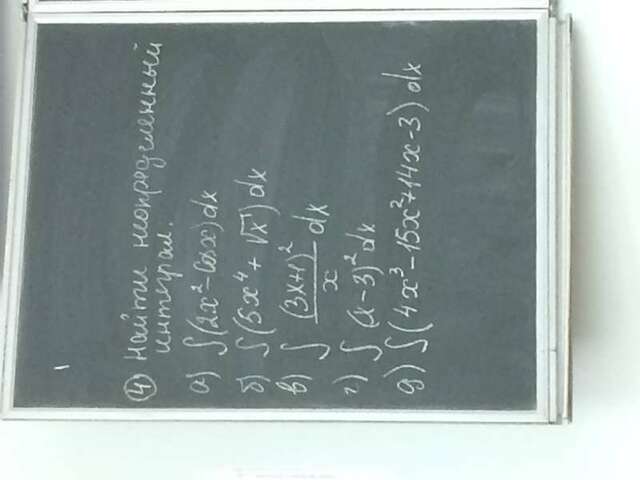 ④ Найти неопределенный
интеграл.
а) ∫(2x²-Cosx)dx
б) ∫(5x⁴+√x)dx
в) ∫ (3x+1)²/x dx
г) ∫(x-3)²dx
д) ∫(4x³-15x²+14x-3)dx